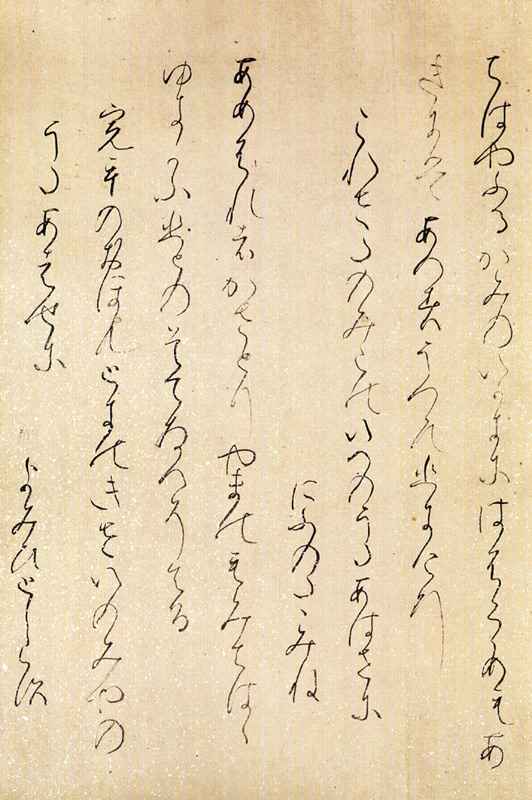 ちはやふるかみのいかきにはふくすもあ
きにはあへすうつろひにけり
これさたのみこのいへのうたあはせに
みふのたゝみね
あめふれはかさとりやまのもみちはゝ
ゆきかふひとのそてさへそてる
寛平のおほんときのきさいのみやの
うたあはせに
よみひとしらす